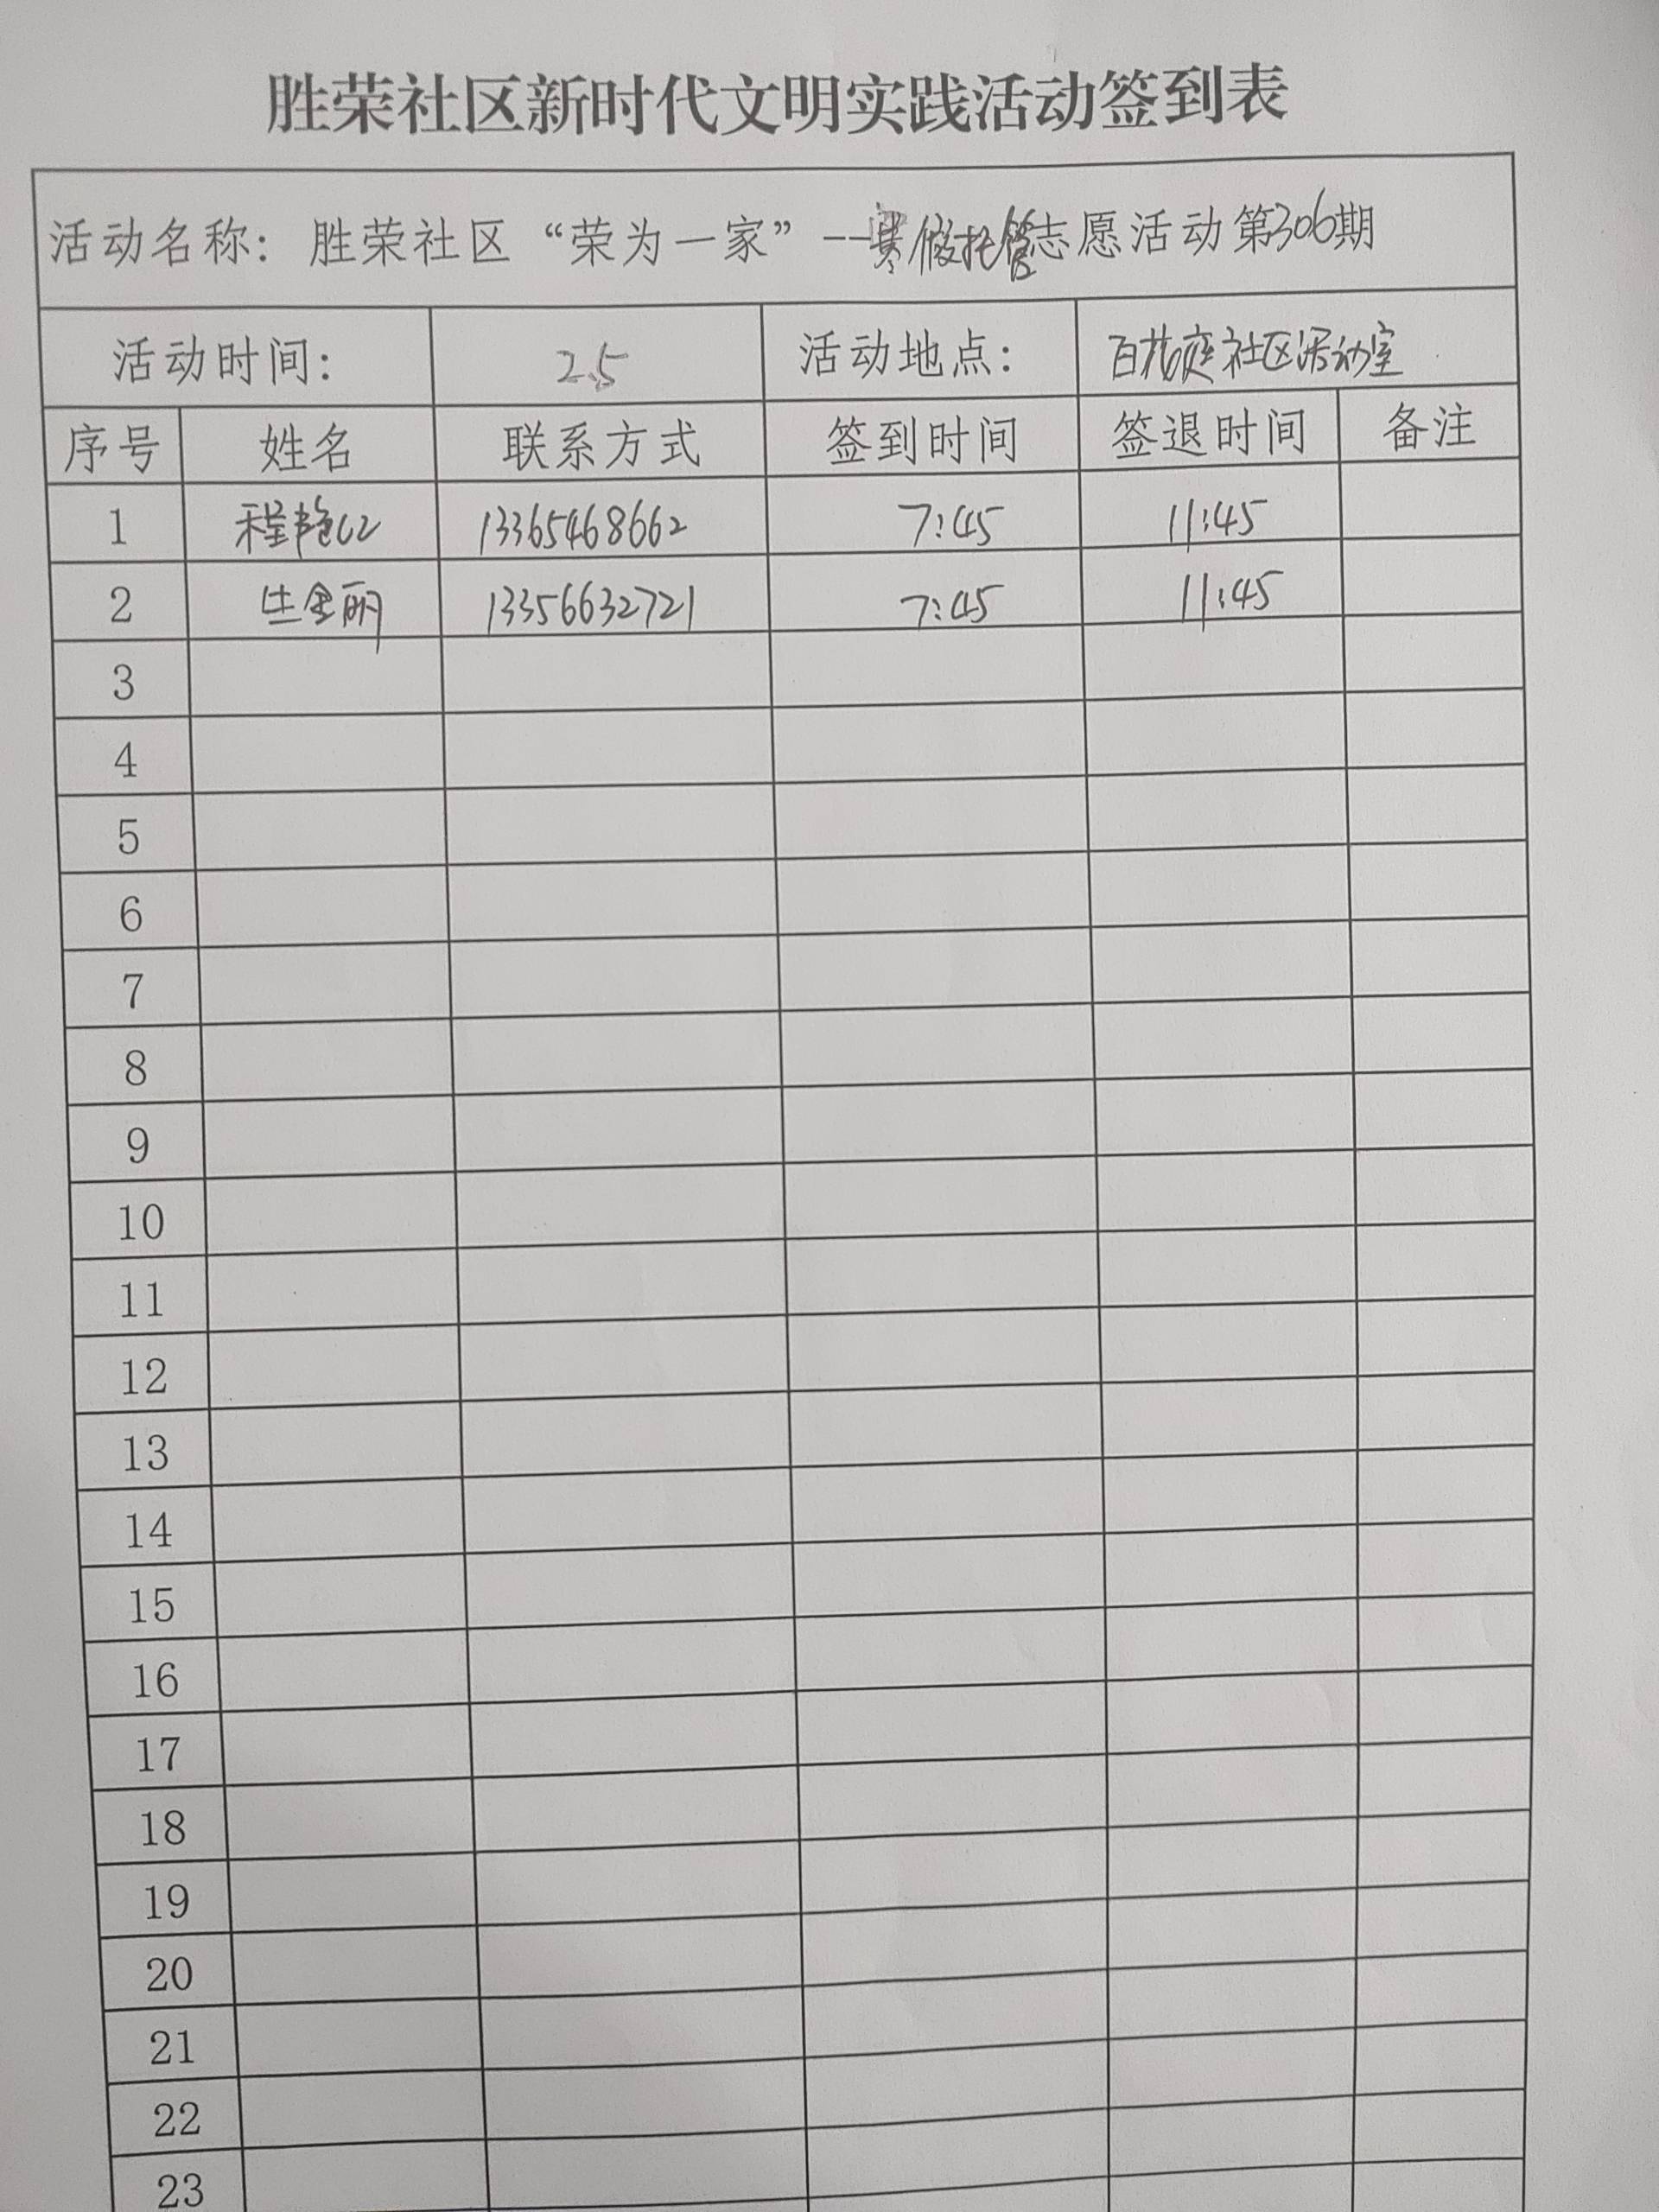 胜荣社区新时代文明实践活动签到表
活动名称：胜荣社区“荣为一家”--寒假托管志愿活动第306期
活动时间： 2.5 活动地点： 百花庭社区活动室
序号 姓名 联系方式 签到时间 签退时间 备注
1 程艳红 13365468662 7:45 11:45
2 生金丽 13356632721 7:45 11:45
3
4
5
6
7
8
9
10
11
12
13
14
15
16
17
18
19
20
21
22
23